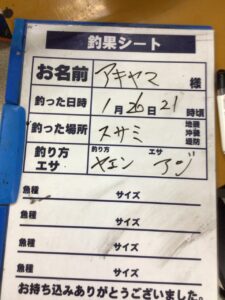 釣果シート
お名前 アキヤマ 様
釣った日時 1月26日21時頃
釣った場所 スサミ 地磯 沖磯 堤防
釣り方 エサ 釣り方 ヤエン エサ アジ
魚種 サイズ
魚種 サイズ
魚種 サイズ
魚種 サイズ
お持ち込みありがとうございました。